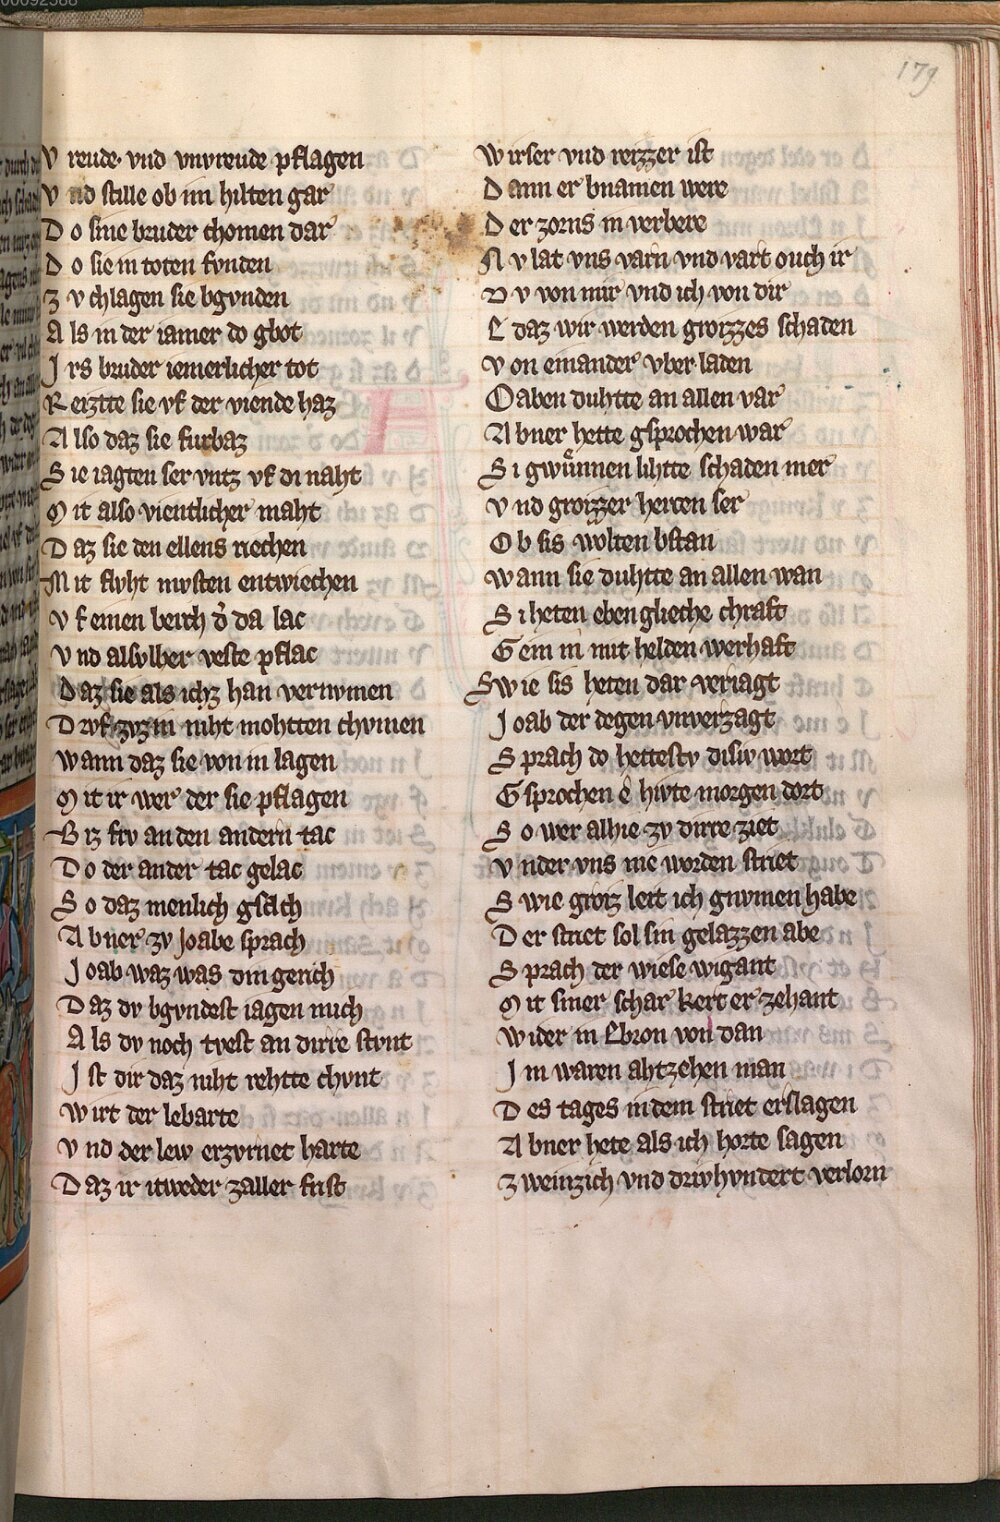 179
V reude· vnd vnvreude pflagen
V nd stille ob im hilten gar
D o sine bruder chomen dar
D o sie in toten fvnden
Z v chlagen sie bgvnden
A ls in der iamer do gbot
J rs bruder iemerlicher tot
R eiztte sie vf der viende haz
A lso daz sie furbaz
S ie iagten ser vntz vf di naht
M it also vientlicher maht
D az sie den ellens riechen
M it flvht mvsten entwiechen
V f einen berch d' da lac
V nd alsvlher veste pflac
D az sie als ichz han vernvmen
D arvf zvzin niht mohtten chvmen
W ann daz sie von in lagen
M it ir wer der sie pflagen
B iz frv an den andern tac
D o der ander tac gelac
S o daz menlich gsach
A bner zv Joabe sprach
J oab waz was din gerich
D az dv bgvndest iagen mich
A ls dv noch tvest an dirre stvnt
J st dir daz niht rehtte chvnt
W irt der lebarte
V nd der lew erzvrnet harte
D az ir itweder zaller frist
W irser vnd reizzer ist
D ann er bnamen were
D er zorns in verbere
N v lat vns varn vnd vart ouch ir
D v von mir vnd ich von dir
E daz wir werden groizzes schaden
V on einander vber laden
Joaben duhtte an allen var
A bner hette gsprochen war
S i gwuͤnnen lihtte schaden mer
V nd groizzer herten ser
O b sis wolten bstan
W ann sie duhtte an allen wan
S i heten ebenglieche chraft
G ein in mit helden werhaft
S wie sis heten dar veriagt
J oab der degen vnverzagt
S prach do hettestv disiv wort
G sprochen e hivte morgen dort
S o wer alhie zv dirre ziet
V nder vns nie worden striet
S wie groiz leit ich gnvmen habe
D er striet sol sin gelazzen abe
S prach der wiese wigant
M it siner schar kert er zehant
W ider in Ebron von dan
J m waren ahtzehen man
D es tages in dem striet erslagen
A bner hete als ich horte sagen
Z weinzich vnd drivhvntert verlorn